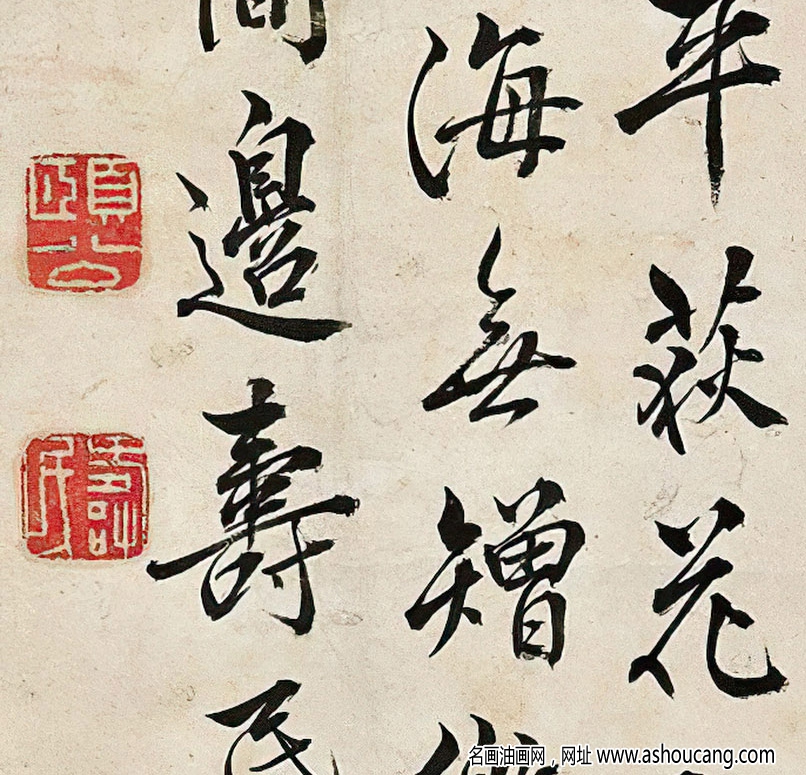 年荻花
海無矰
邊壽民
頤公
壽民
名画油画网，网址 www.ashoucang.com